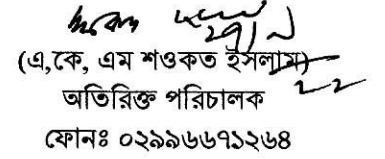 (এ,কে, এম শওকত ইসলাম)
অতিরিক্ত পরিচালক
ফোনঃ ০২৯৯৬৬৭১২৬৪